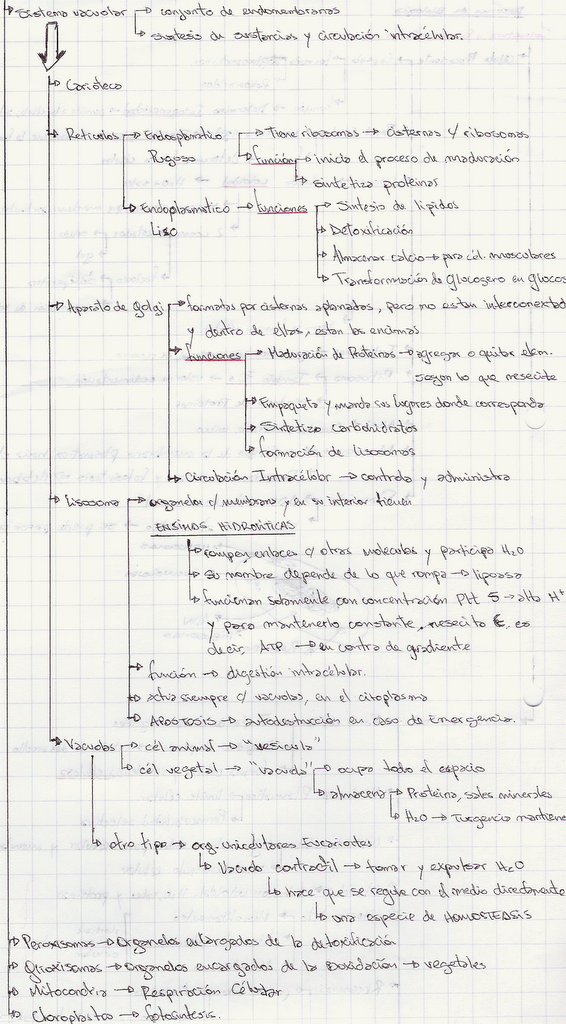 Sistema vacuolar → conjunto de endomembranas
→ sintesis de sustancias y circulación intracélular.
→ Carioteca
→ Reticulos → Endoplasmatico → Tiene ribosomas → cisternas y ribosomas
Rugoso → función → inicia el proceso de maduración
→ sintetiza proteinas
→ Endoplasmatico → funciones → Sintesis de lipidos
Liso → Detoxificación
→ Almacenar calcio → para cél. musculares
→ Transformación de Glucogeno en Glucos
→ Aparato de Golgi → formatos por cisternas aplanadas, pero no estan interconectad
y dentro de ellas, estan las enzimas
→ funciones → Maduración de Proteinas → agregar o quitar elem.
segun lo que nesecite
→ Empaqueta y manda sus lugares donde corresponda
→ Sintetiza carbohidratos
→ formación de Lisosomas
→ Circulación Intracélular → controla y administra
→ Lisosoma → organelos c/ membrana y en su interior tienen
ENSIMAS HIDROLITICAS
→ rompen enlaces c/ otras moleculas y participa H₂O
→ su nombre depende de lo que rompa → lipoasa
→ funcionan solamente con concentración PH 5 → alto H⁺
y para mantenerlo constante, nesecita E, es
decir, ATP → en contra de gradiente
→ función → digestión intracélular.
→ actua siempre c/ vacuolas, en el citoplasma
→ APOSTOSIS → autodestrucción en caso de Emergencia.
→ Vacuolas → cél animal → "vesicula"
→ cél vegetal → "vacuola" → ocupa todo el espacio
→ almacena → Proteina, sales minerales
→ H₂O → Turgencia mantiene
→ otro tipo → org. unicelulares Eucariontes
→ Vacuola contractil → tomar y expulsar H₂O
→ hace que se regule con el medio directamente
→ una especie de HOMOSTEASIS
→ Peroxisomas → Organelos encargados de la detoxificación
→ Glioxisomas → Organelos encargados de la oxidación → vegetales
→ Mitocondria → Respiración Célular
→ Cloroplastos → fotosintesis.